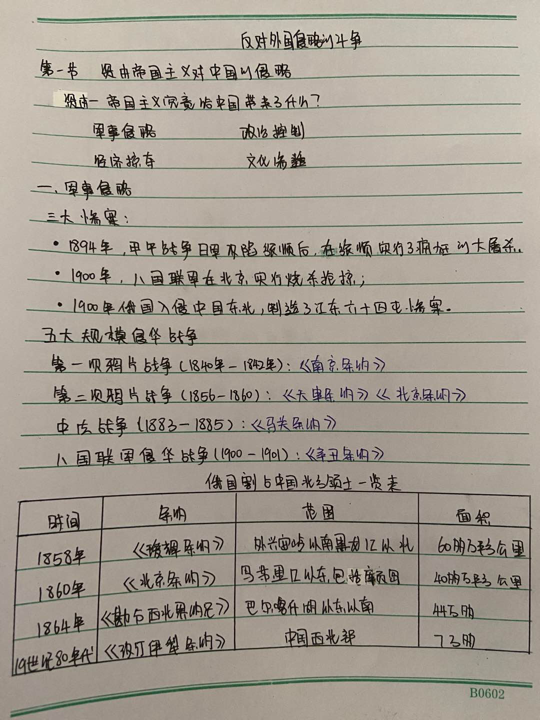 反对外国侵略的斗争
第一节 资本帝国主义对中国的侵略
资本-帝国主义究竟给中国带来了什么?
军事侵略 政治控制
经济掠夺 文化渗透
一、军事侵略
三大惨案:
• 1894年,甲午战争日军攻陷旅顺后,在旅顺实行了疯狂的大屠杀.
• 1900年,八国联军在北京实行烧杀抢掠;
• 1900年俄国入侵中国东北,制造了江东六十四屯惨案。
五大规模侵华战争
第一次鸦片战争(1840年-1842年):《南京条约》
第二次鸦片战争(1856-1860):《天津条约》《北京条约》
中法战争(1883-1885):《马关条约》
八国联军侵华战争(1900-1901):《辛丑条约》
俄国割占中国北方领土一览表
时间 条约 范围 面积
1858年 《瑷珲条约》 外兴安岭以南黑龙江以北 60多万平方公里
1860年 《北京条约》 乌苏里江以东,包括库页岛 40多万平方公里
1864年 《勘分西北界约记》 巴尔喀什湖以东以南 44万多
19世纪80年代 《改订伊犁条约》 中国西北部 7万多
B0602